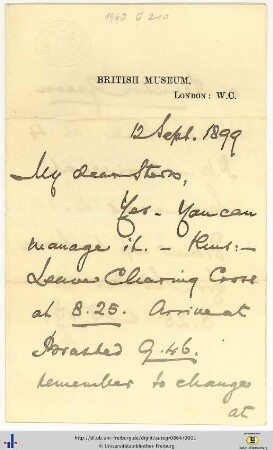 1940 G 210
BRITISH MUSEUM,
LONDON: W.C.
12 Sept. 1899
My dear
Yes - You can
manage it. - thus:-
Leave Charing Cross
at 8.25. Arrive at
9.46.
remember to change
at
http://dl.ub.uni-freiburg.de/diglit/autogr0864/0001
© Universitätsbibliothek Freiburg